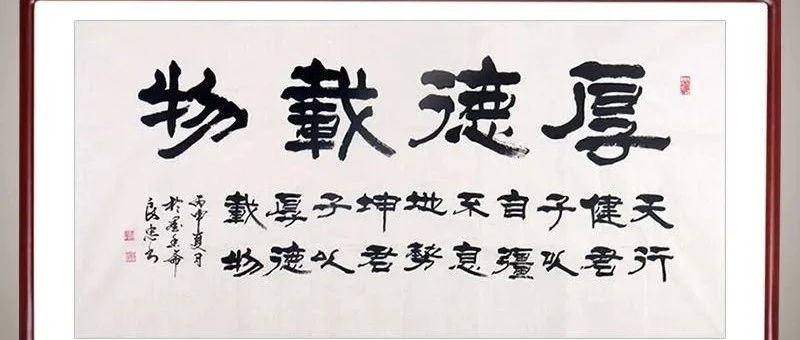 厚德載物
天行
健君
子以
自彊
不息
地勢
坤君
子以
厚德
載物
丙申夏月
於墨香齋
良忠书